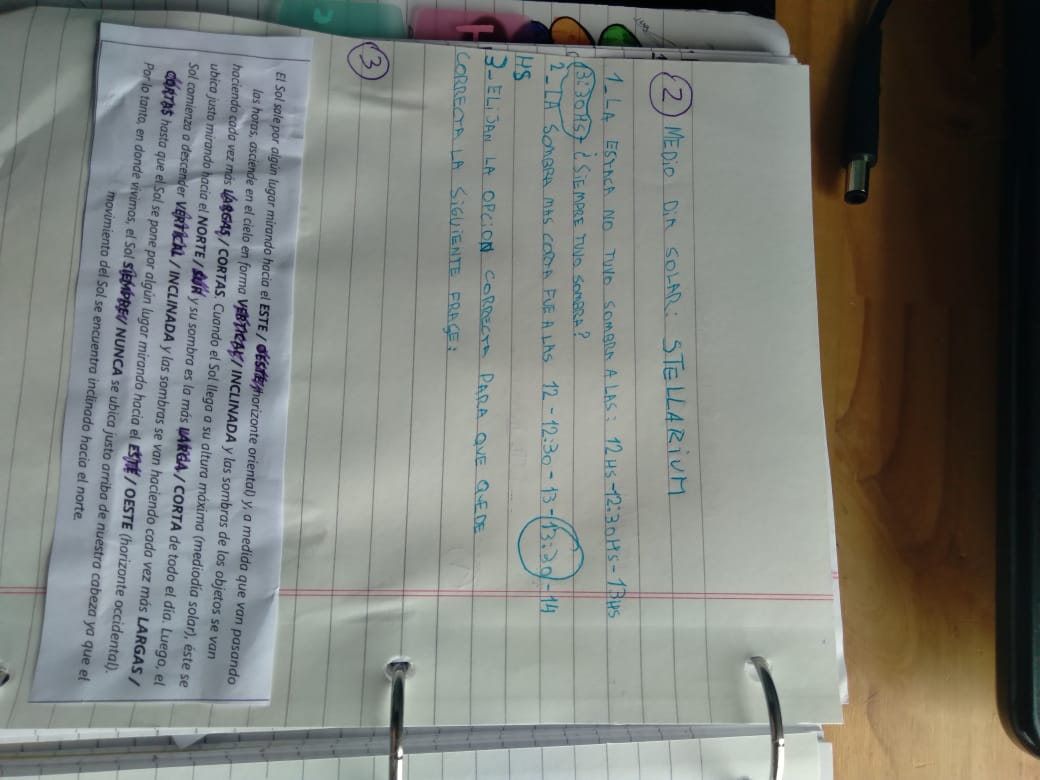 2 MEDIO DIA SOLAR: STELLARIUM
1_LA ESTACA NO TUVO SOMBRA A LAS: 12HS-12:30HS-13HS
13:30HS ¿SIEMPRE TUVO SOMBRA?
2_LA SOMBRA MAS CORTA FUE A LAS 12-12:30-13-13:30-14
HS
3-ELIJAN LA OPCION CORRECTA PARA QUE QUEDE
CORRECTA LA SIGUIENTE FRASE:
3
El Sol sale por algún lugar mirando hacia el ESTE / OESTE (horizonte oriental) y, a medida que van pasando
las horas, asciende en el cielo en forma VERTICAL / INCLINADA y las sombras de los objetos se van
haciendo cada vez más LARGAS / CORTAS. Cuando el Sol llega a su altura máxima (mediodía solar), éste se
ubica justo mirando hacia el NORTE / SUR y su sombra es la más LARGA / CORTA de todo el día. Luego, el
Sol comienza a descender VERTICAL / INCLINADA y las sombras se van haciendo cada vez más LARGAS /
CORTAS hasta que el Sol se pone por algún lugar mirando hacia el ESTE / OESTE (horizonte occidental).
Por lo tanto, en donde vivimos, el Sol SIEMPRE / NUNCA se ubica justo arriba de nuestra cabeza ya que el
movimiento del Sol se encuentra inclinado hacia el norte.